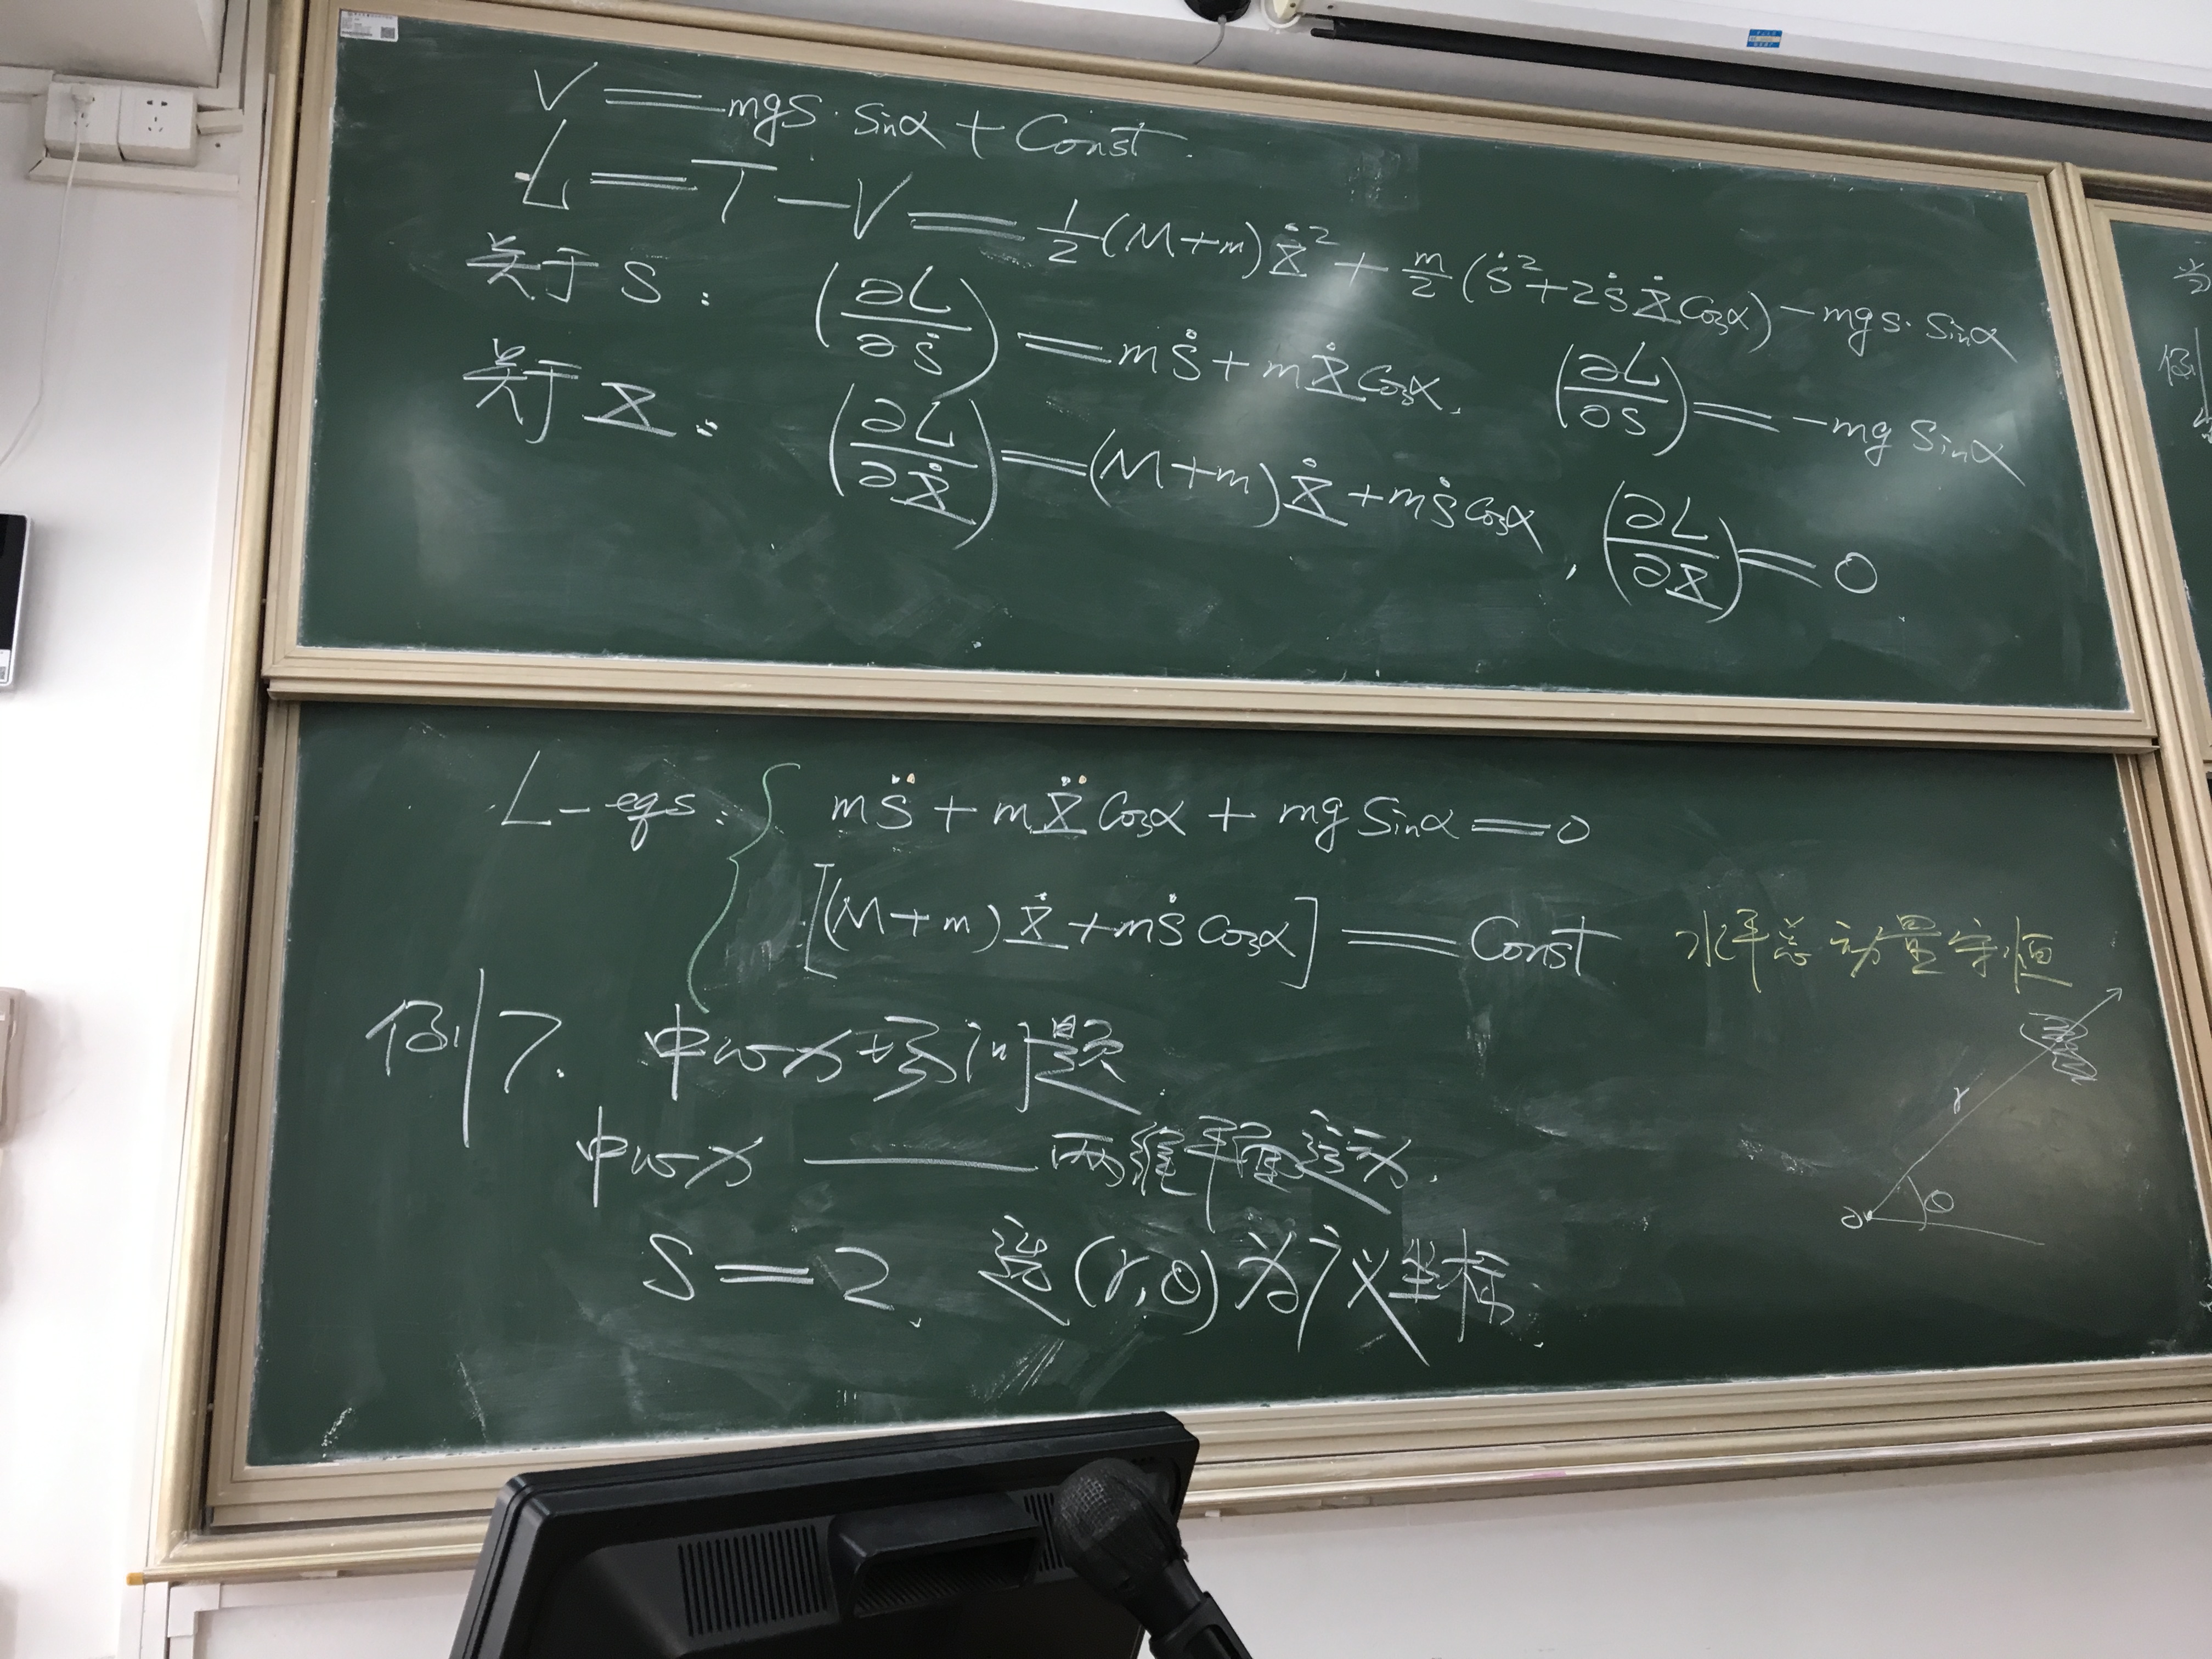 V = mgs·Sinα + Const.
L = T − V = 1/2 (M+m)Ẋ² + m/2 (ṡ² + 2ṡẊCosα) − mgs·Sinα
关于 S: (∂L/∂ṡ) = mṡ + mẊCosα, (∂L/∂s) = −mg Sinα
关于 X: (∂L/∂Ẋ) = (M+m)Ẋ + mṡCosα, (∂L/∂X) = 0
L-eqs: { ms̈ + mẌCosα + mg Sinα = 0
[(M+m)Ẋ + mṡCosα] = Const 水平总动量守恒
例7. 中心力场问题.
中心力 —— 两维平面运动.
S = 2, 选(r,θ)为广义坐标.
r
θ
o